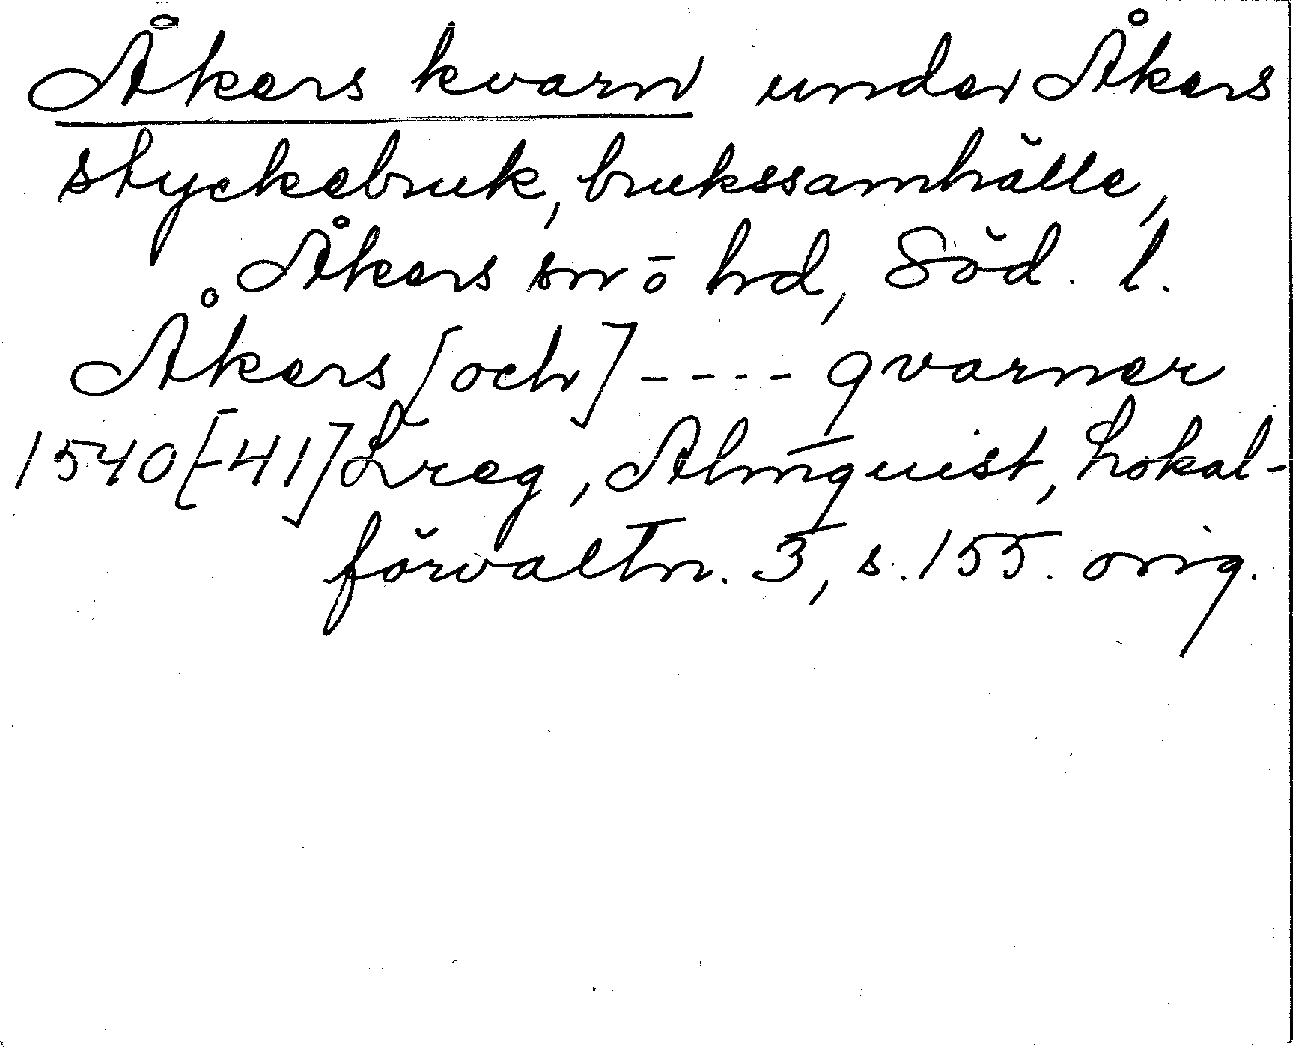 Åkers kvarn under Åkers
styckebruk, brukssamhälle,
Åkers sn o hd, Söd. l.
Åkers [och] ---- qvarner
1540[-41] Lreg, Almquist, Lokal-
förvaltn. 3, s. 155. orig.